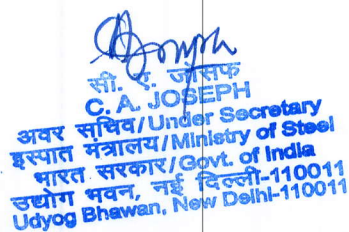 Joseph
सी. ए. जोसफ
C. A. JOSEPH
अवर सचिव/Under Secretary
इस्पात मंत्रालय/Ministry of Steel
भारत सरकार/Govt. of India
उद्योग भवन, नई दिल्ली-110011
Udyog Bhawan, New Delhi-110011